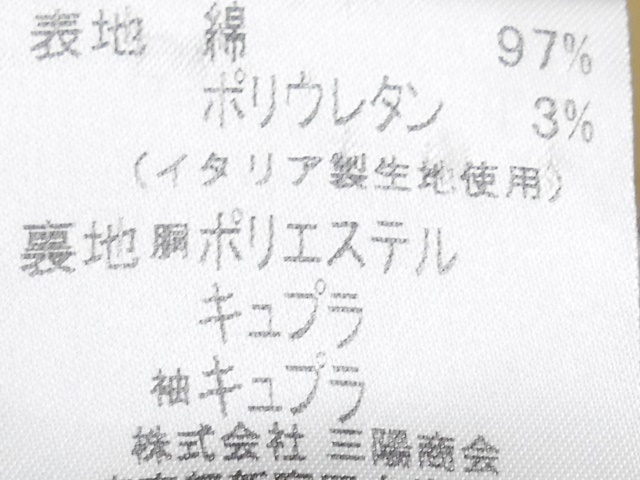 表地 綿 97%
ポリウレタン 3%
(イタリア製生地使用)
裏地 胴 ポリエステル
キュプラ
袖 キュプラ
株式会社 三陽商会